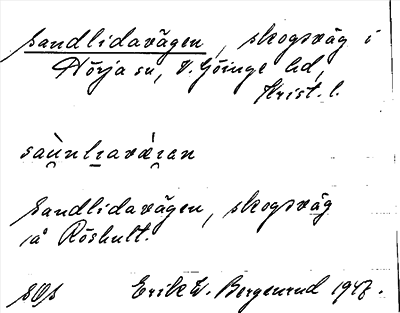 Sandlidavägen, skogsväg i
Hörja sn, V. Göinge hd,
Krist. l.
Sandlidavägen, skogsväg
i å Röshult.
SOs Erik W. Bergenrud 1947.